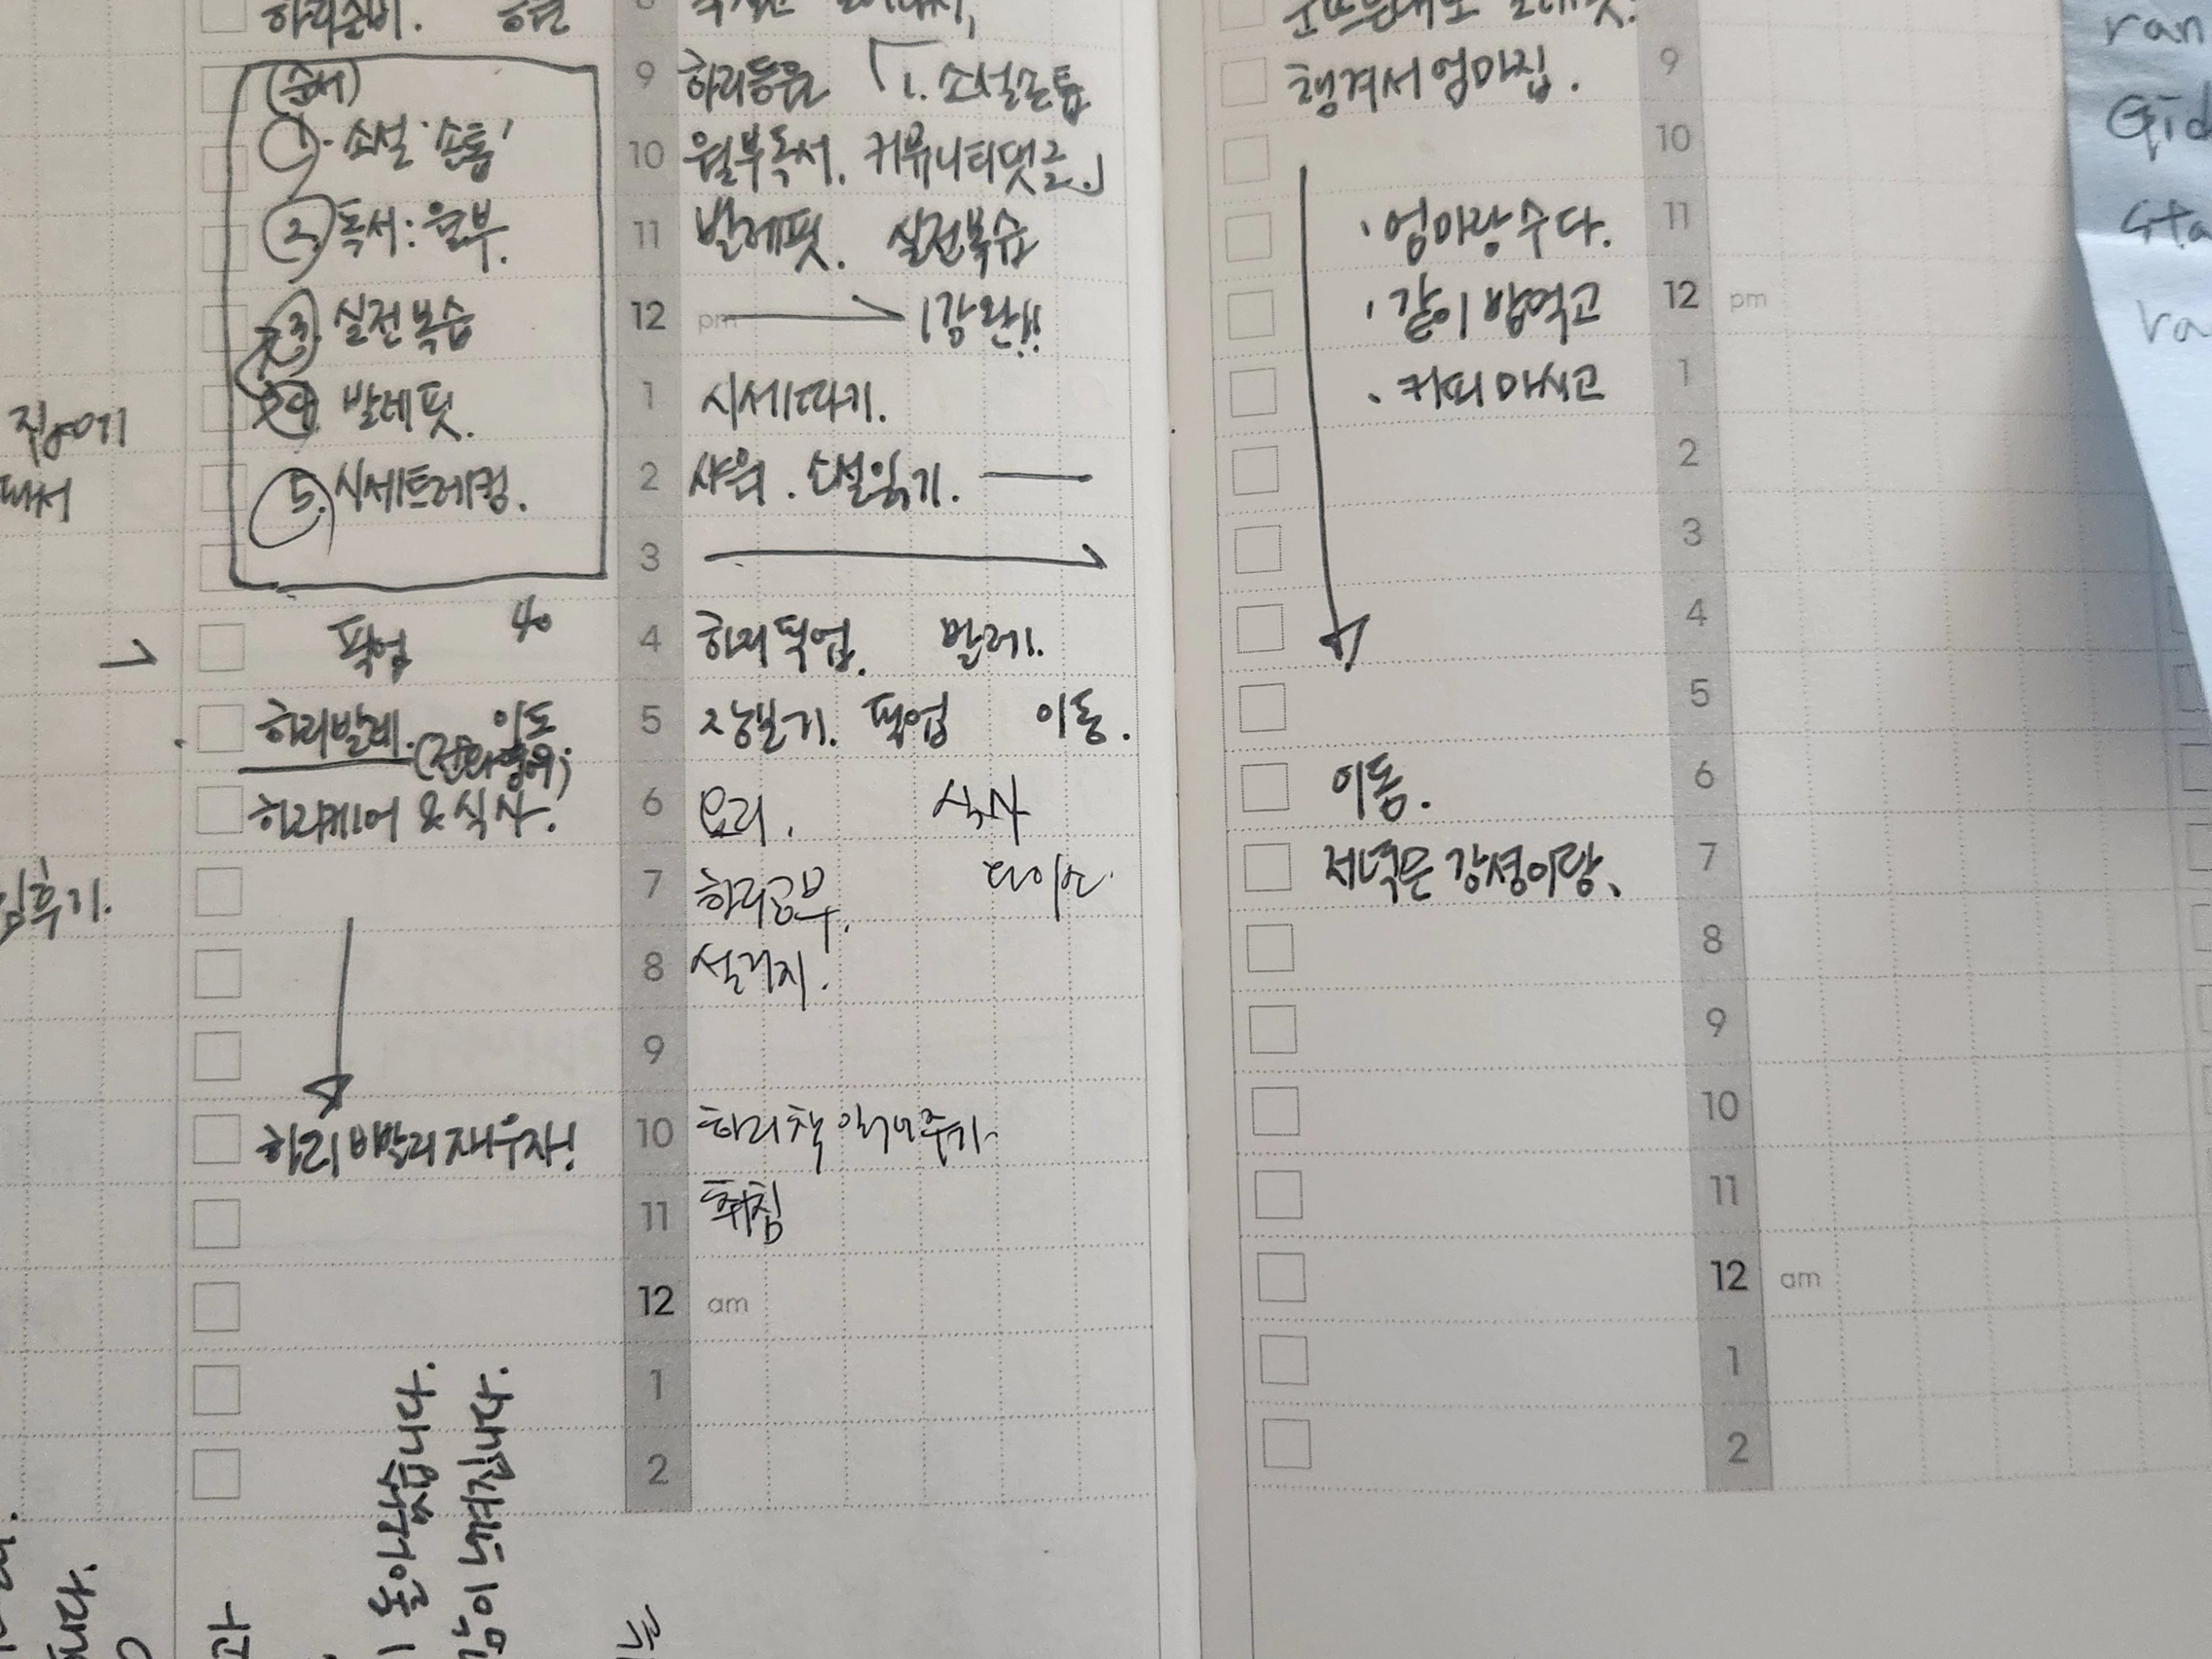 하리준비.
(순서)
1. 소설 '손톱'
2. 독서: 월부.
3. 실전복습
발레핏.
5. 시세트레킹.
픽업 40
하리발레. 이도
(전화영어)
하리케어 & 식사.
하리 빨리 재우자!
9 하리등원 「1. 소설손톱
10 월부독서. 커뮤니티댓글.」
11 발레핏. 실전복습
12 pm → 1강 완!!
1 시세따기.
2 샤워. 소설읽기.
3
4 하리픽업. 발레.
5 장보기. 픽업 이동.
6 요리. 식사
7 하리공부. 다이소
8 설거지.
9
10 하리책 읽어주기
11 취침
12 am
1
2
9 챙겨서 엄마집.
10
11 엄마랑 수다.
12 pm 같이 밥먹고
1 커피 마시고
2
3
4
5
6 이동.
7 저녁은 강성이랑.
8
9
10
11
12 am
1
2
임후기.
ran
Gid
sta
ra